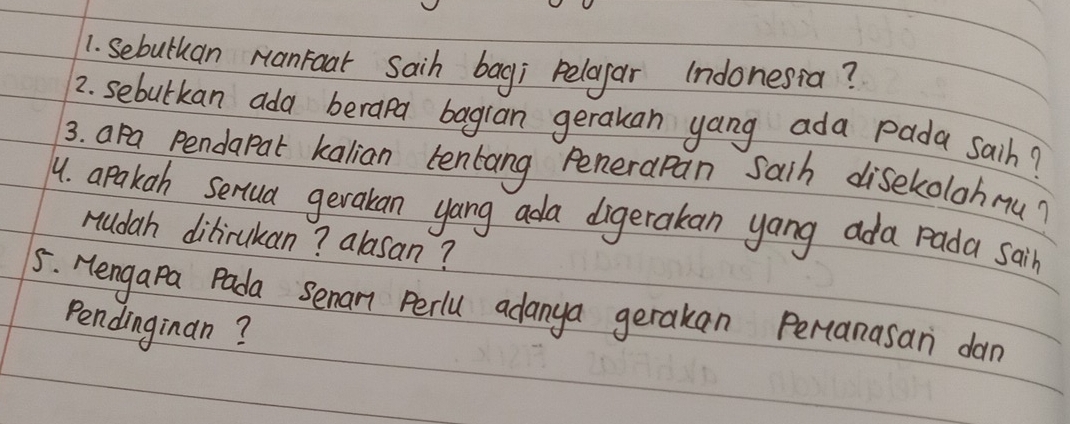 1. Sebutkan Manfaat Saih bagi Pelajar Indonesia?
2. sebutkan ada berapa bagian gerakan yang ada pada Saih?
3. apa Pendapat kalian tentang Penerapan Saih disekolahmu?
4. apakah semua gerakan yang ada digerakan yang ada pada Saih
Mudah ditirukan? alasan?
5. Mengapa Pada Senam Perlu adanya gerakan Pemanasan dan
Pendinginan?